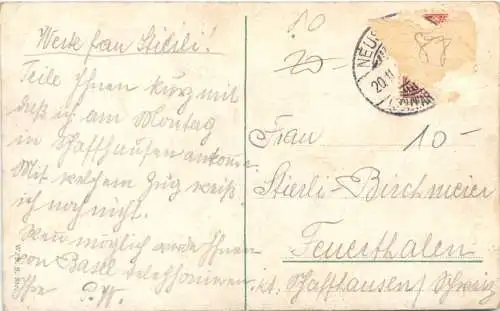 Werte Frau Stierli!
Teile Ihnen kurz mit
daß ich am Montag
in Schaffhausen ankomme
Mit welchem Zug weiß
ich noch nicht.
Wenn möglich werde Ihnen
von Basel telephonieren
Ihre P. W.
10
20
88
20.11
10-
Frau
Stierli-Birchmeier
Feuerthalen
kt. Schaffhausen / Schweiz